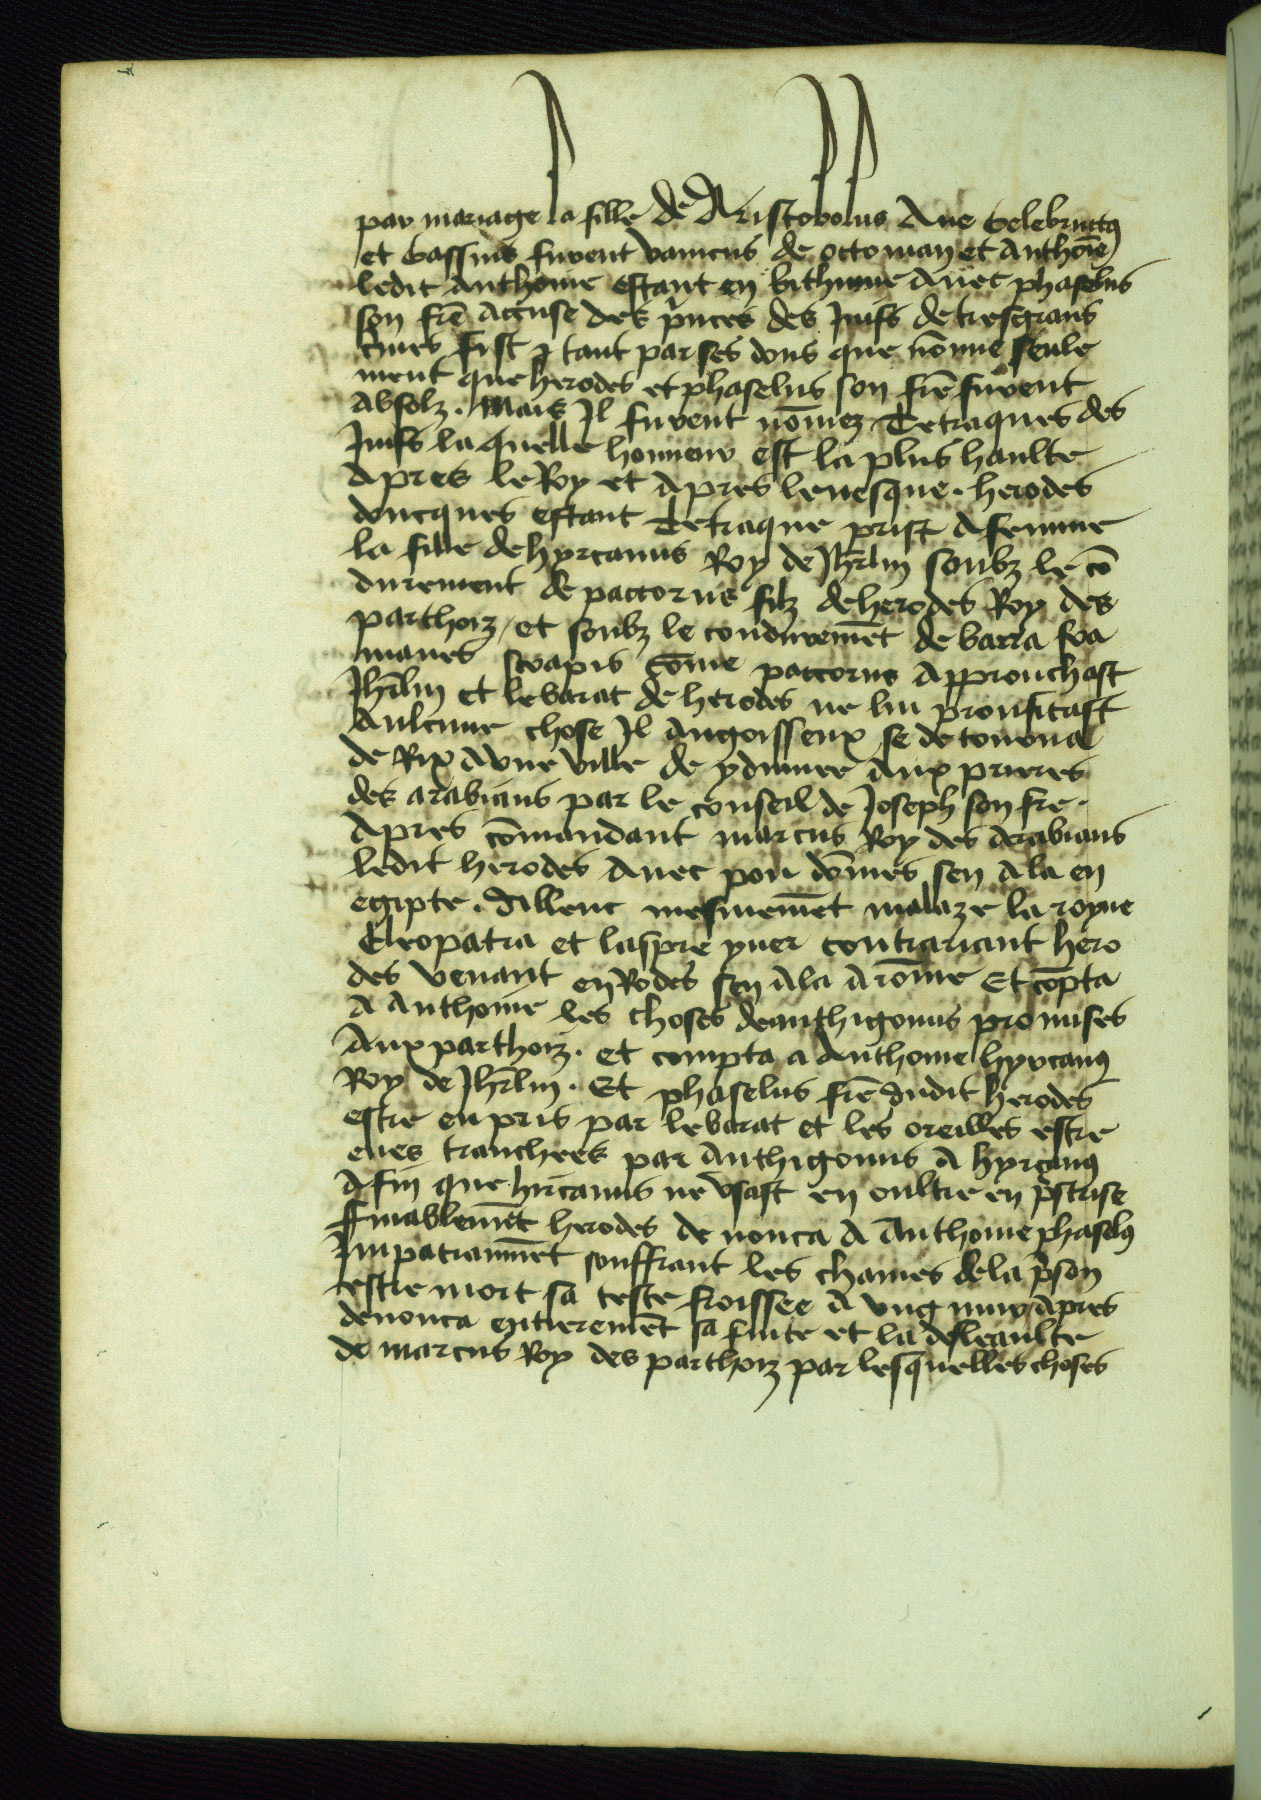 par mariage la fille de Aristobolus Aue
et Cassius furent vaincus de octouian et Anthoīe
ledit Anthonie estant en bithinie Auec phaselus
son frē Accuse des p̄nces des Juifs de tresgrans
c̄mes fist tant par ses dons que nōme seule
ment que herodes et phaselus son frē furent
Absolz . Mais Il furent nōmez Tetraques des
Juifs laquelle honneur est la plus haulte
Apres le Roy et Apres leuesque . herodes
doncques estant Tetraque prist A femme
la fille de hyrcanus Roy de Jhrl̄m soubz le cō
duirement de paccorus filz de herodes Roy des
parthoiz / et soubz le conduirem̄et de barza fra
manes srapis cōme paccorus Approuchast
Jhrl̄m et le barat de herodes ne lui proufitast
Aulcune chose Il Angoisseux se de tourna
de Rix A vne ville de ydumee Aux prieres
des arabians par le conseil de Joseph son frē .
Apres cōmandant marcus Roy des Arabians
ledit herodes Auec pou dōmes sen Ala en
egipte . Jllenc mesmem̄et malaze la royne
Cleopatra et laspre yuer contrariant hero
des venant en Rodes sen Ala A rōme Et cōpta
A Anthonie les choses de anthigonus promises
Aux parthoiz . et compta a Anthonie hyrcanꝰ
Roy de Jhrl̄m . Et phaselus frē dudit herodes
estre en pris par le barat et les oreilles estre
eues tranchees par Anthigonus A hyrcanꝰ
Afin que hircanus ne vsast en oultre en p̄strise
ffinablem̄et herodes de nonca A Anthonie phaselꝰ
Impatiamm̄et souffrant les chaines de la p̄son
estre mort sa teste froissee A vng mur / Apres
denonca entierem̄et sa fuite et la desleaulte
de marcus Roy des parthoiz par lesquelles choses